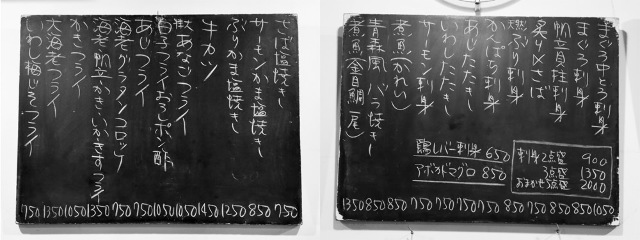 まぐろ中とろ刺身 1050
まぐろ刺身 850
帆立貝柱刺身 850
炙り〆さば 750
天然ぶり刺身 850
かんぱち刺身 750
あじたたき 750
いわしたたき 750
サーモン刺身 750
煮魚(かれい) 850
青森風バラ焼き 850
煮魚(金目鯛一尾) 1350
刺身2点盛 900
3点盛 1350
おまかせ5点盛 2000
鶏レバー刺身 650
アボカドマグロ 850
さば塩焼き 750
サーモンかま塩焼き 850
ぶりかま塩焼き 1250
牛カツ 1450
あなごフライ 1050
白子フライおろしポン酢 1050
あじフライ 750
海老グラタンコロッケ 750
海老帆立かきいかきすフライ 1350
かきフライ 1050
大海老フライ 1350
いわし梅じそフライ 750